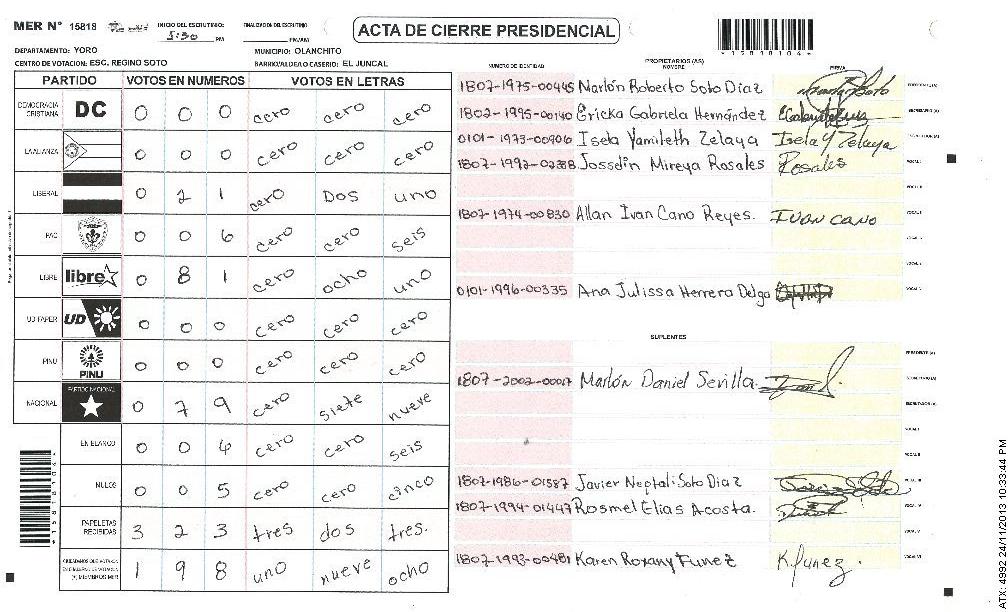 MER Nº 15818 INICIO DEL ESCRUTINIO: 5:30 PM FINALIZACION DEL ESCRUTINIO: PM/AM
ACTA DE CIERRE PRESIDENCIAL
DEPARTAMENTO: YORO MUNICIPIO: OLANCHITO
CENTRO DE VOTACION: ESC. REGINO SOTO BARRIO/ALDEA O CASERIO: EL JUNCAL
PARTIDO VOTOS EN NUMEROS VOTOS EN LETRAS
DEMOCRACIA CRISTIANA DC 0 0 0 cero cero cero
LA ALIANZA 0 0 0 cero cero cero
LIBERAL 0 2 1 cero Dos uno
PAC 0 0 6 cero cero seis
LIBRE libre 0 8 1 cero ocho uno
UD FAPER UD 0 0 0 cero cero cero
PINU PINU 0 0 0 cero cero cero
NACIONAL PARTIDO NACIONAL 0 7 9 cero siete nueve
EN BLANCO 0 0 6 cero cero seis
NULOS 0 0 5 cero cero cinco
PAPELETAS RECIBIDAS 3 2 3 tres dos tres.
1 9 8 uno nueve ocho
PROPIETARIOS (AS)
NUMERO DE IDENTIDAD NOMBRE FIRMA
1807-1975-00445 Marlón Roberto Soto Díaz
1802-1995-00140 Ericka Gabriela Hernández
0101-1973-00906 Isela Yamileth Zelaya Isela Y Zelaya
1807-1992-02388 Josselin Mireya Rosales Rosales
1807-1974-00830 Allan Ivan Cano Reyes. IVAN CANO
0101-1996-00335 Ana Julissa Herrera Delgo
SUPLENTES
1807-2002-00017 Marlón Daniel Sevilla.
1807-1986-01587 Javier Neptali Soto Diaz
1807-1994-01447 Rosmel Elias Acosta.
1807-1993-00481 Karen Roxany Funez K.funez.
ATX: 4992 24/11/2013 10:33:44 PM